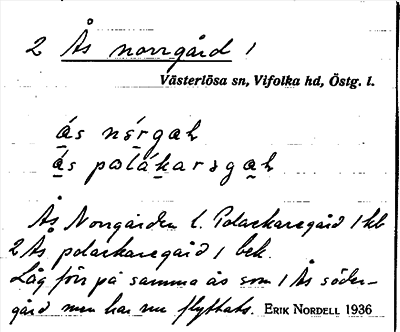 2 Ås norrgård 1
Västerlösa sn, Vifolka hd, Östg. l.
ás nórgaḥ
ás polákarsgaḥ
Ås Norrgården l. Polackaregård 1 kb
2 Ås polackaregård 1 bek.
Låg förr på samma ås som 1 Ås söder-
gård men har nu flyttats. ERIK NORDELL 1936